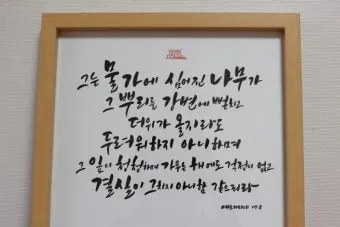 그는 물가에 심어진 나무가
그 뿌리를 강변에 뻗치고
더위가 올지라도
두려워하지 아니하며
그 잎이 청청하며 가무는 해에도 걱정이 없고
결실이 그치지 아니함 같으리라
예레미야 17:8